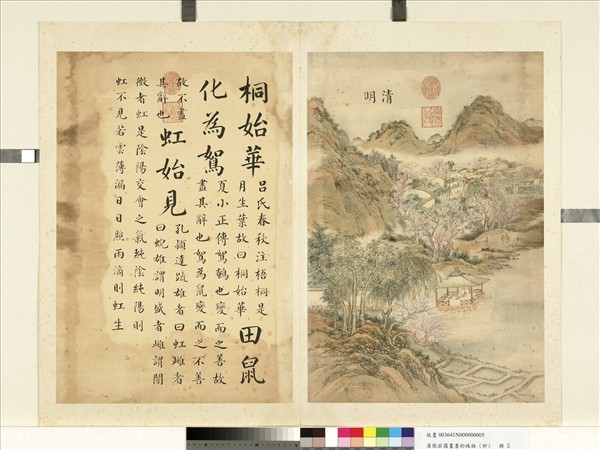 清明
桐始華
呂氏春秋注梧桐是
月生葉故曰桐始華
田鼠
化為鴽
夏小正傳鴽鵪也變而之善故
盡其辭也鴽為鼠變而之不善
故不盡
其辭也
虹始見
孔穎達疏雄者曰虹雌者
曰蜺雄謂明盛者雌謂闇
微者虹是陰陽交會之氣純陰純陽則
虹不見若雲薄漏日日照雨滴則虹生
故畫 003641N000000005
清張若靄畫墨妙珠林(卯) 冊 5